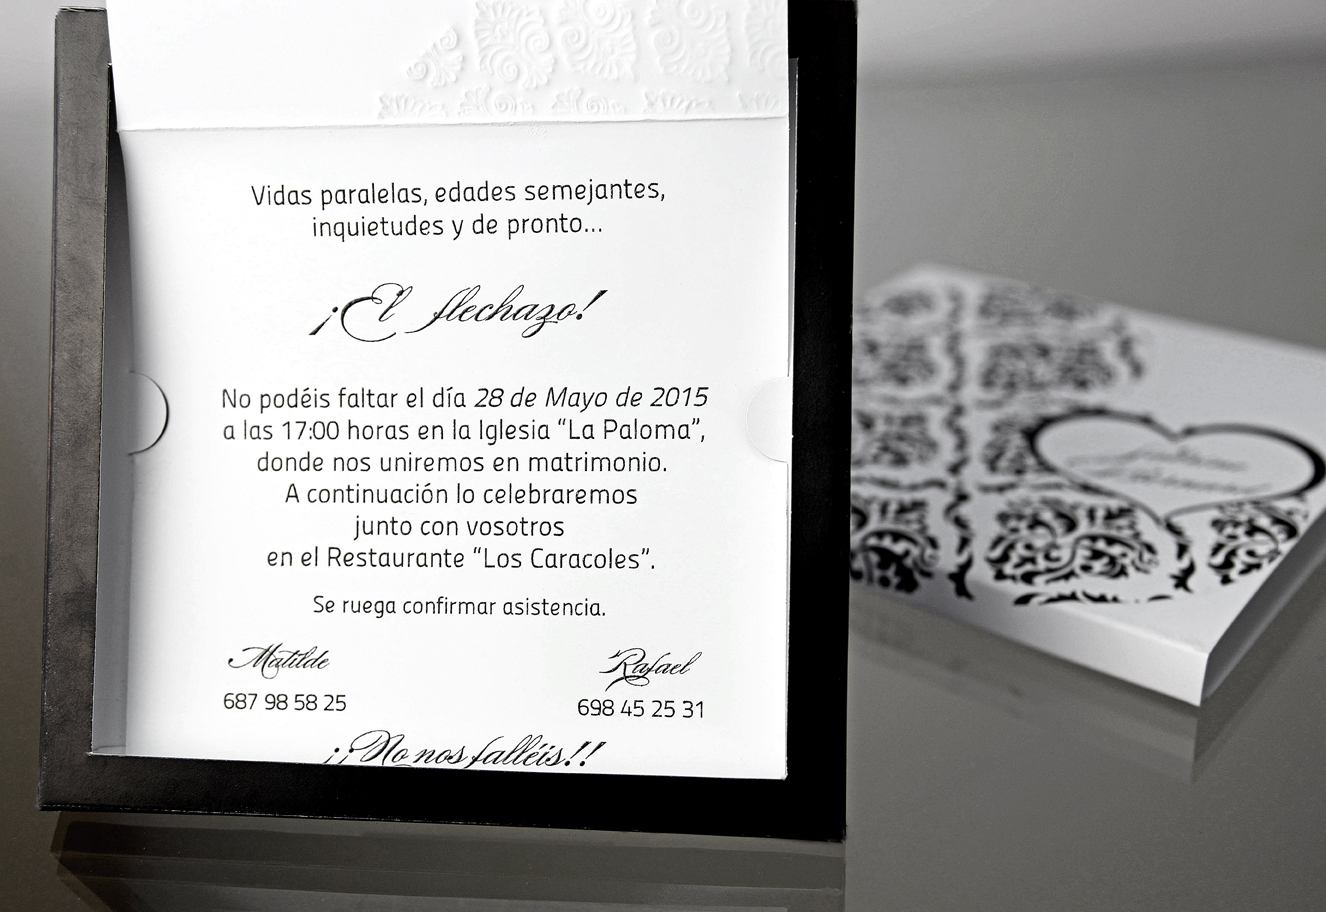 Vidas paralelas, edades semejantes,
inquietudes y de pronto...
¡El flechazo!
No podéis faltar el día 28 de Mayo de 2015
a las 17:00 horas en la Iglesia “La Paloma”,
donde nos uniremos en matrimonio.
A continuación lo celebraremos
junto con vosotros
en el Restaurante “Los Caracoles”.
Se ruega confirmar asistencia.
Matilde Rafael
687 98 58 25 698 45 25 31
¡¡No nos falléis!!